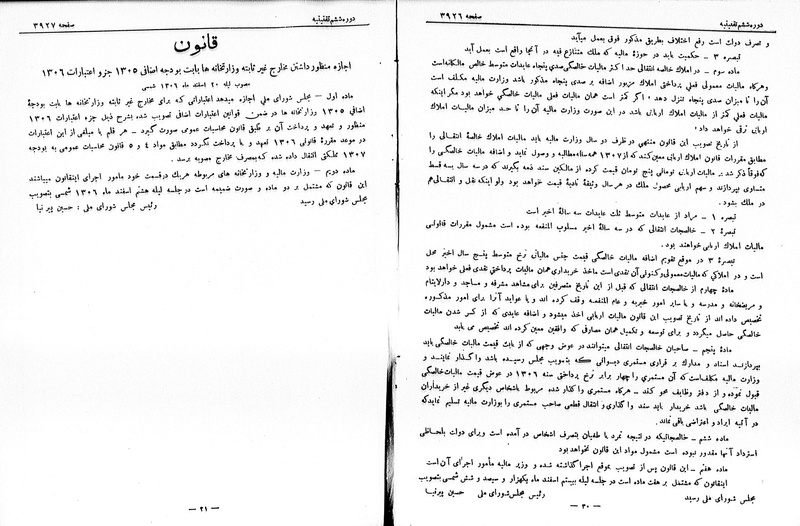 دوره ششم تقنینیه
صفحه ۳۹۲۶
و تصرف دولت است رفع اختلاف بطریق مذکور فوق بعمل میآید
تبصره ۳ – حکمیت باید در حوزۀ مالیه که ملک متنازع فیه در آنجا واقع است بعمل آید
ماده سوم – در املاک خالصه انتقالی حد اکثر مالیات خالصگی صدی پنجاه عایدات متوسط خالص مالکانه است
و هرگاه مالیات معمولی فعلی پرداختی املاک مزبور اضافه بر صدی پنجاه مذکور باشد وزارت مالیه مکلف است
آن را تا میزان صدی پنجاه تنزل دهد . اگر کمتر است همان مالیات فعلی مالیات خالصگی خواهد بود مگر اینکه
مالیات فعلی کمتر از مالیات املاک اربابی باشد در این صورت وزارت مالیه آن را تا حد میزان مالیات املاک
اربابی ترقی خواهد داد .
از تاریخ تصویب این قانون منتهی در ظرف دو سال وزارت مالیه باید مالیات املاک خالصۀ انتقالی را
مطابق مقررات قانون املاک اربابی معین کند که از ۱۳۰۷ همه ساله مطالبه و وصول نماید و اضافه مالیات خالصگی را
که فوقاً ذکر شد بر مالیات اربابی تومانی پنج تومان قیمت کرده از مالکین سند ذمه بگیرند که در سه سال بسه قسط
متساوی بپردازند و سهم اربابی محصول ملک در هر سال وثیقۀ تادیۀ قیمت خواهد بود ولو اینکه نقل و انتقالی هم
در ملک بشود .
تبصره ۱ – مراد از عایدات متوسط ثلث عایدات سه سالۀ اخیر است
تبصرۀ ۲ – خالصجات انتقالی که در سه سالۀ اخیر مسلوب المنفعه بوده است مشمول مقررات قانونی
مالیات املاک اربابی خواهند بود .
تبصرۀ ۳ در موقع تقویم اضافه مالیات خالصگی قیمت جنس مالیاتی نرخ متوسط پنج سال اخیر محل
است و در املاکی که مالیات معمولی و کنونی آن نقدی است ماخذ خریداری همان مالیات پرداختی نقدی فعلی خواهد بود
مادۀ چهارم از خالصجات انتقالی که قبل از این تاریخ متصرفین برای مشاهد مشرفه و مساجد و دارالایتام
و مریضخانه و مدرسه و یا سایر امور خیریه و عام المنفعه وقف کرده اند و یا عواید آنرا برای امور مذکوره
تخصیص داده اند از تاریخ تصویب این قانون مالیات اربابی اخذ میشود و اضافه عایدی که از کسر شدن مالیات
خالصگی حاصل میگردد و برای توسعه و تکمیل همان مصارفی که واقفین معین کرده اند تخصیص می یابد
مادۀ پنجم – صاحبان خالصجات انتقالی میتوانند در عوض وجهی که از بابت قیمت مالیات خالصگی باید
بپردازند اسناد و مدارک بر قراری مستمری دیوانی که بتصویب مجلس رسیده باشد واگذار نمایند و
وزارت مالیه مکلف است که آن مستمری را چهار برابر نرخ پرداختی سنه ۱۳۰۶ در عوض قیمت مالیات خالصگی
قبول نموده و از دفتر وظایف محو کند – هرگاه مستمری واگذار شده مربوط باشخاص دیگری غیر از خریداران
مالیات خالصگی باشد خریدار باید سند واگذاری و انتقال قطعی صاحب مستمری را بوزارت مالیه تسلیم نماید که
در آتیه ایراد و اعتراضی باقی نماند .
ماده ششم – خالصجاتیکه در نتیجه تمرد یا طغیان بتصرف اشخاص در آمده است و برای دولت بلحاظی
استرداد آنها مقدور نبوده است مشمول مواد این قانون نخواهد بود
ماده هفتم – این قانون پس از تصویب بموقع اجرا گذاشته شده و وزیر مالیه مأمور اجرای آن است
اینقانون که مشتمل بر هفت ماده است در جلسه لیله بیستم اسفند ماه یکهزار و سیصد و شش شمسی بتصویب
مجلس شورای ملی رسید
رئیس مجلس شورای ملی حسین پیرنیا
– ۳۰ –
دوره ششم تقنینیه
صفحه ۳۹۲۷
قانون
اجازه منظور داشتن مخارج غیر ثابته وزارتخانه ها بابت بودجه اضافی ۱۳۰۵ جزو اعتبارات ۱۳۰۶
مصوب لیله ۲۰ اسفند ماه ۱۳۰۶ شمسی
ماده اول – مجلس شورای ملی اجازه میدهد اعتباراتی که برای مخارج غیر ثابته وزارتخانه ها بابت بودجۀ
اضافی ۱۳۰۵ وزارتخانه ها در ضمن قوانین اعتبارات اضافی تصویب شده بشرح ذیل جزء اعتبارات ۱۳۰۶
منظور و تعهد و پرداخت آن بر طبق قانون محاسبات عمومی صورت گیرد – هر قلم یا مبلغی از این اعتبارات
در موعد مقررۀ قانونی ۱۳۰۶ تعهد و یا پرداخت نگردد مطابق مواد ۴ و ۵ قانون محاسبات عمومی به بودجه
۱۳۰۷ مملکتی انتقال داده شده که بمصرف مخارج مصوبه برسد .
ماده دوم – وزارت مالیه و وزارتخانه های مربوطه هریک در قسمت خود مامور اجرای اینقانون میباشند
این قانون که مشتمل بر دو ماده و صورت ضمیمه است در جلسه لیله هشتم اسفند ماه ۱۳۰۶ شمسی بتصویب
مجلس شورای ملی رسید
رئیس مجلس شورای ملی : حسین پیرنیا
– ۳۱ –